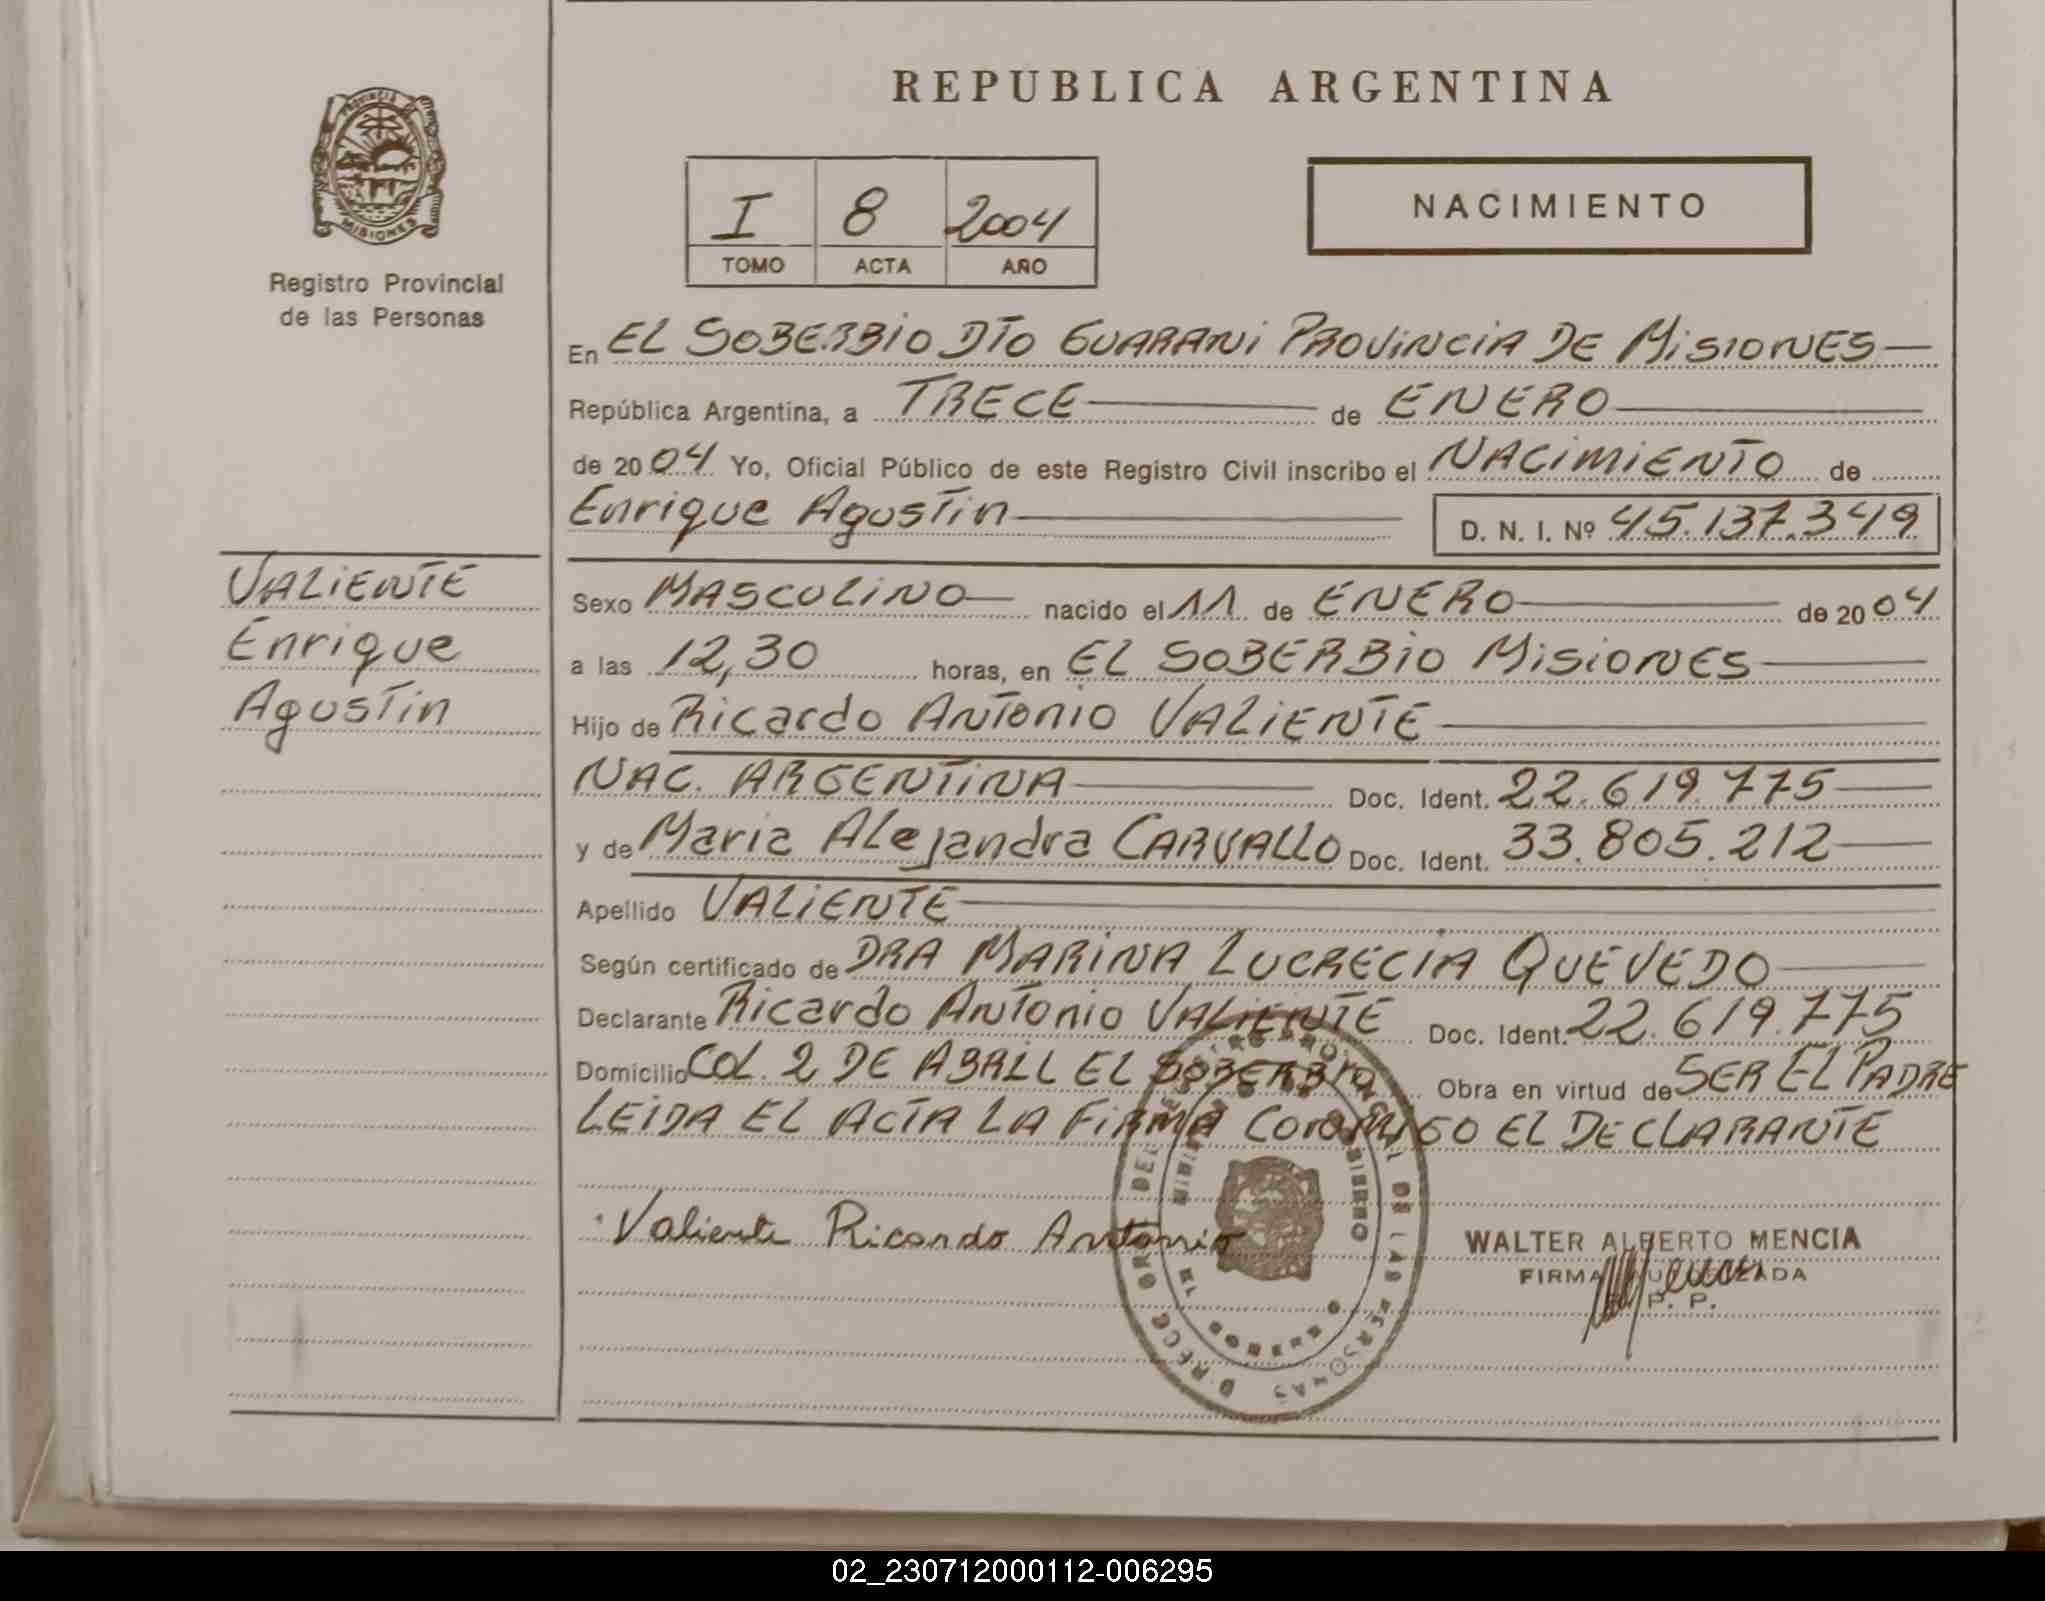 REPUBLICA ARGENTINA
PROVINCIA
MISIONES
Registro Provincial
de las Personas
I 8 2004
TOMO ACTA AÑO
NACIMIENTO
En EL SOBERBIO DTO GUARANI PROVINCIA DE MISIONES
República Argentina, a TRECE de ENERO
de 2004 Yo, Oficial Público de este Registro Civil inscribo el NACIMIENTO de
Enrique Agustin D. N. I. Nº 45.137.349
VALIENTE
Enrique
Agustin
Sexo MASCULINO nacido el 11 de ENERO de 2004
a las 12,30 horas, en EL SOBERBIO MISIONES
Hijo de Ricardo Antonio VALIENTE
NAC. ARGENTINA Doc. Ident. 22.619.775
y de Maria Alejandra CARVALLO Doc. Ident. 33.805.212
Apellido VALIENTE
Según certificado de DRA MARINA LUCRECIA QUEVEDO
Declarante Ricardo Antonio VALIENTE Doc. Ident. 22.619.775
Domicilio COL. 2 DE ABRIL EL SOBERBIO Obra en virtud de SER EL PADRE
LEIDA EL ACTA LA FIRMA CONMIGO EL DECLARANTE
Valiente Ricardo Antonio
WALTER ALBERTO MENCIA
FIRMA AUTORIZADA
R. P. P.
DE LAS PERSONAS
02_230712000112-006295